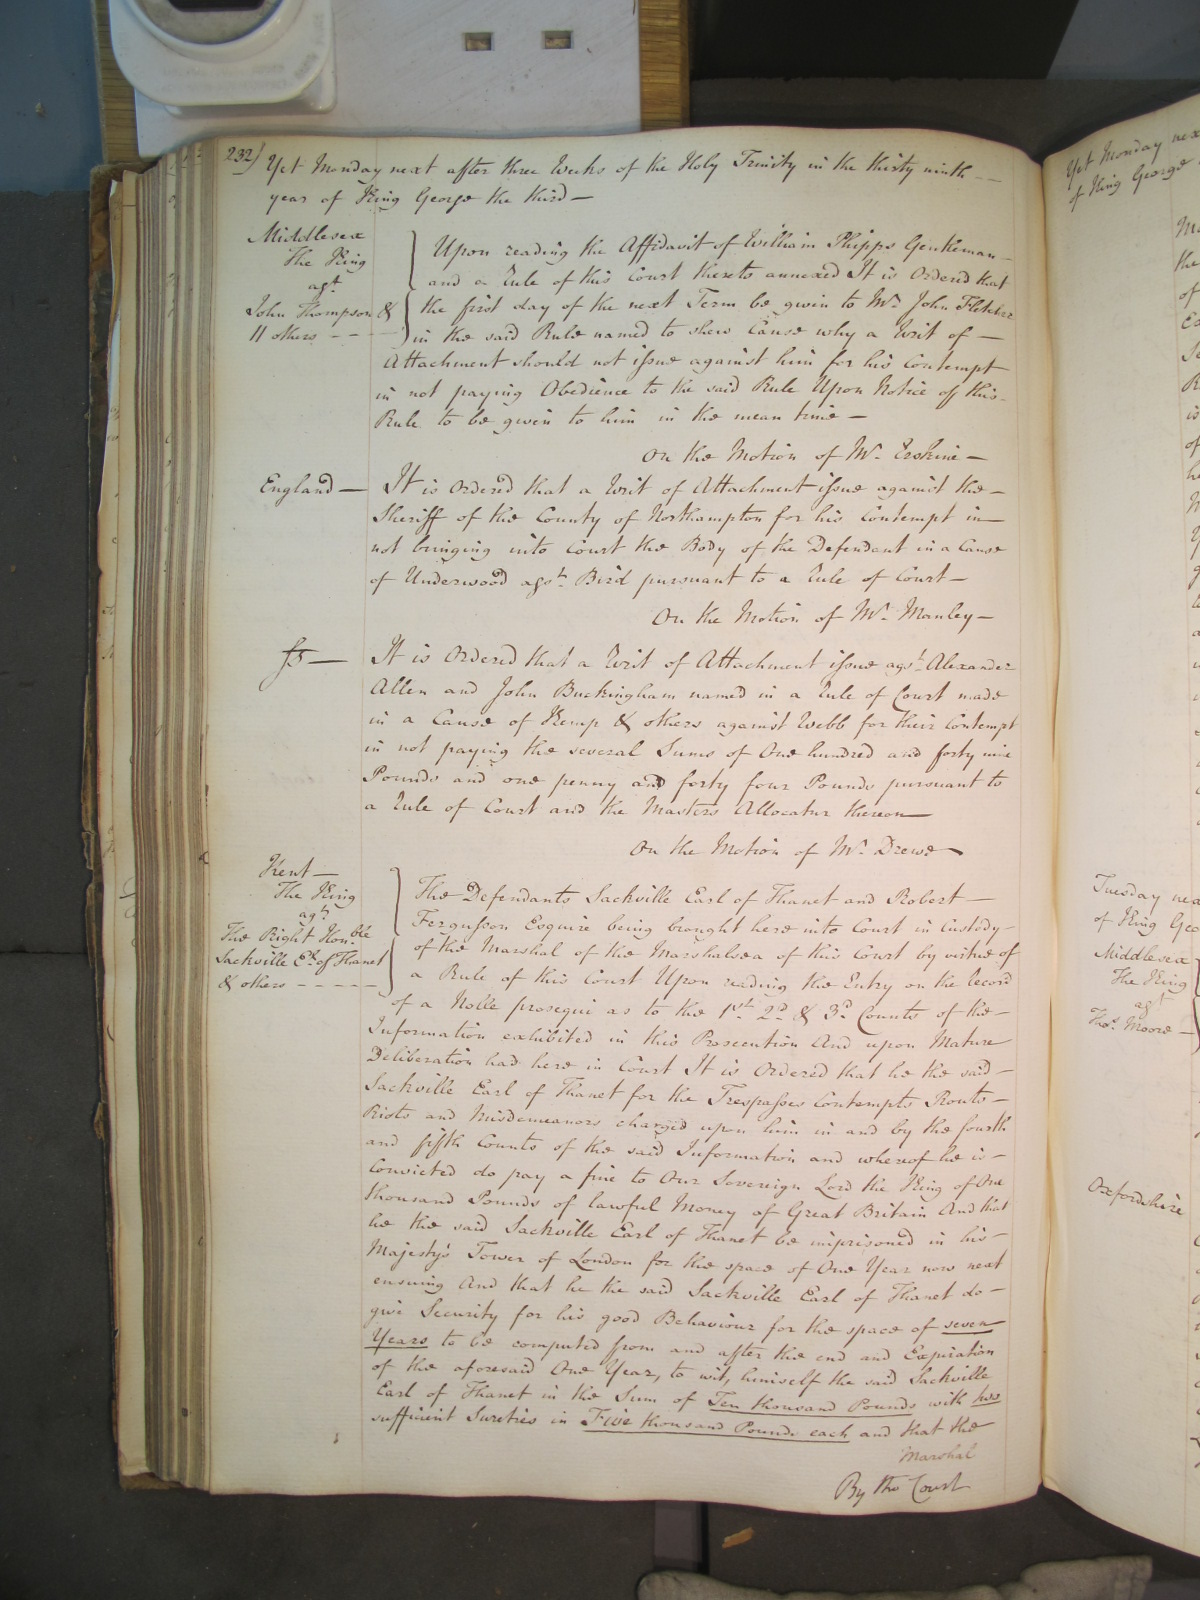 232)
Yet Monday next after three Weeks of the Holy Trinity in the thirty ninth
year of King George the third—
Middlesex
The King
agt
John Thompson &
11 others
Upon reading the Affidavit of William Phipps Gentleman
and a Rule of this Court thereto annexed It is Ordered that
the first day of the next Term be given to Mr. John Fletcher
in the said Rule named to shew Cause why a Writ of—
Attachment should not issue against him for his Contempt
in not paying Obedience to the said Rule Upon Notice of this
Rule to be given to him in the mean time—
On the Motion of Mr. Erskine—
England—
It is Ordered that a Writ of Attachment issue against the—
Sheriff of the County of Northampton for his Contempt in—
not bringing into Court the Body of the Defendant in a Cause
of Underwood agst. Bird pursuant to a Rule of Court—
On the Motion of Mr. Manley—
It is Ordered that a Writ of Attachment issue agst. Alexander
Allen and John Buckingham named in a Rule of Court made
in a Cause of Kemp & others against Webb for their Contempt
in not paying the several Sums of One hundred and forty nine
Pounds and one penny and forty four Pounds pursuant to
a Rule of Court and the Masters Allocatur thereon—
On the Motion of Mr. Drewe—
Kent—
The King
agt.
The Right Honble.
Sackville El. of Thanet
& others
The Defendants Sackville Earl of Thanet and Robert—
Fergusson Esquire being brought here into Court in Custody
of the Marshal of the Marshalsea of this Court by virtue of
a Rule of this Court Upon reading the Entry on the Record
of a Nolle prosequi as to the 1st. 2d. & 3d. Counts of the—
Information exhibited in this Prosecution And upon Mature
Deliberation had here in Court It is Ordered that he the said—
Sackville Earl of Thanet for the Trespasses Contempts Routs—
Riots and Misdemeanors charged upon him in and by the fourth
and fifth Counts of the said Information and whereof he is—
Convicted do pay a fine to Our Sovereign Lord the King of One
thousand Pounds of lawful Money of Great Britain And that
he the said Sackville Earl of Thanet be imprisoned in his—
Majesty's Tower of London for the space of One Year now next
ensuing And that he the said Sackville Earl of Thanet do—
give Security for his good Behaviour for the space of seven
Years to be computed from and after the end and Expiration
of the aforesaid One Year, to wit, himself the said Sackville
Earl of Thanet in the Sum of Ten thousand Pounds with two
sufficient Sureties in Five thousand Pounds each and that the
Marshal
By the Court
Yet Monday nex
of King George
Tuesday nex
of King Geo
Middlesex
The King
agt
Thos. Moore—
Oxfordshire